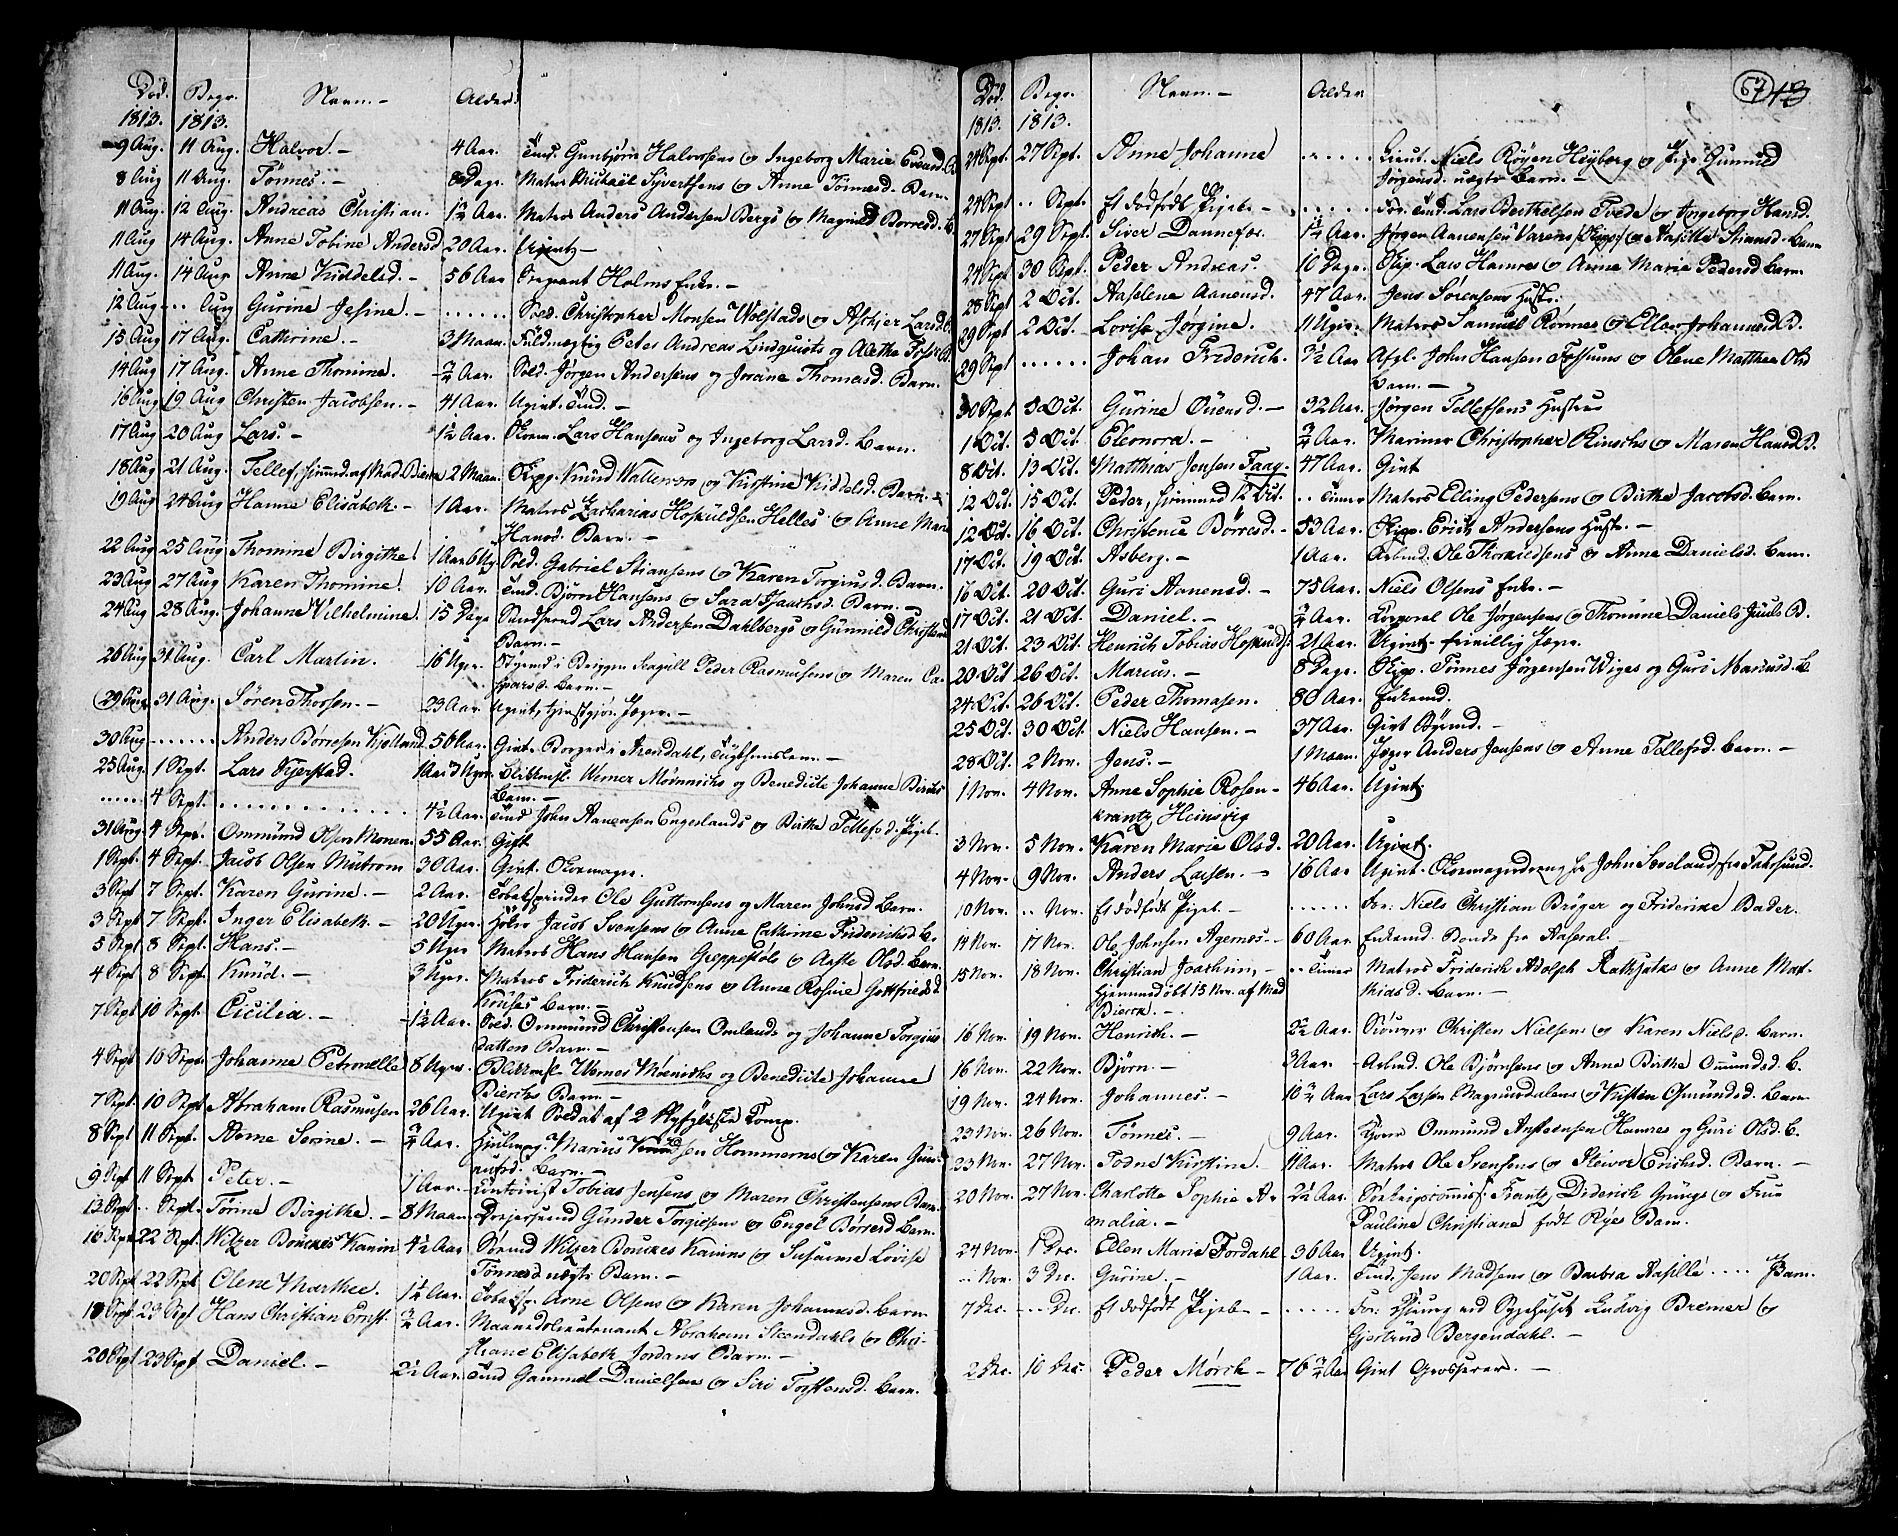 Død. Begr. Navn.- Alder.
1813. 1813.
9 Aug. 11 Aug. Halvor.- 4 Aar. Gunbjørn Halvorsens og Ingeborg Marie
8 Aug 11 Aug. Tønnes.- 8 Dage. Matros Michaël Syvertsens og Anne Tønnesd. Barn.
11 Aug. 12 Aug. Andreas Christian. 1½ Aar. Matros Anders Andersen Bergs og Magnild Børresd. B.
11 Aug 14 Aug. Anne Tobine Andersd 20 Aar. Ugivt-
11 Aug. 14 Aug Anne Kiddelsd.- 56 Aar Sergeant Holms Enke.-
12 Aug .. Aug Gurine Jesine.- ...... Sold. Christopher Monsen Wolstads og Larsd.
15 Aug 17 Aug. Cathrine.- 3 Maan. Fuldmægtig Peter Andreas Lindquists og Alethe
14 Aug 17 Aug. Anne Thomine. ¾ Aar. Sold. Jørgen Andersens og Jorane Thomasd. Barn.
16 Aug 19 Aug Christen Jacobsen.- 41 Aar. Ugivt.
17 Aug 20 Aug Lars.- 1½ Aar. Lars Hansens og Ingeborg Larsd. Barn.
18 Aug 21 Aug. Tellef, hjemmd. af Mad. 2 Maan. Knud og Kirstine Kiddelsd. Barn.-
19 Aug 24 Aug Hanne Elisabeth.- 1 Aar. Matros Zacharias Hoskuldsen Helles og Anne Marie
Hansd. Barn.-
22 Aug 25 Aug Thomine Birgithe. 1 Aar 6 Ug. Sold. Gabriel Stiansens og Karen Torgiusd. Barn.
23 Aug 27 Aug Karen Thomine. 10 Aar. Bjørn Hansens og Sara Isachsd. Barn.-
24 Aug 28 Aug. Johanne Vilhelmine. 15 Dage Lars Andersen Dahlbergs og Gunnild
Barn.-
26 Aug 31 Aug. Carl Martin. 16 Uger. Styrmd i Briggen Seagull Peder Rasmussens og Maren Ca-
Barn.-
29 Aug. 31 Aug. Søren Thorsen.- 23 Aar. Ugivt, tjenstgjør. Jæger.-
30 Aug ...... Anders Børresen Kjølland 56 Aar. Givt. Borger i Arendahl,
25 Aug. 1 Sept. Lars Kjerstad. Werner Mønnichs og Benedicte Johanne
Barn.-
...... 4 Sept. ...... 4½ Aar. John Aanensen Engeslands og Birthe Tellefsd. Pigeb.
31 Aug. 4 Sept. Ommund Olsen Monen 55 Aar. Gift
1 Sept. 4 Sept. Jacob Olsen 30 Aar. Givt. Skomager.
3 Sept 7 Sept. Karen Gurine.- 2 Aar. Tobakspinder Ole Guttormsens og Maren Johnsd Barn.
3 Sept 7 Sept. Inger Elisabeth.- 20 Uger. Jacob Svensens og Anne Cathrine Friderichsd B.
5 Sept 8 Sept. Hans.- 5 Uger Matros Hans Hansen Greppestøls og Aasle Olsd. Barn.
4 Sept 8 Sept. Knud.- 3 Uger. Matros Friderich Knudsens og Anne Rosine Gottfriedsd
Barn.-
7 Sept 10 Sept. Cicilia.- 1½ Aar. Sold. Ommund Christensen Omlands og Johanne Torgius
datters Barn.-
4 Sept 10 Sept. Johanne Petronelle 8 Uger. Werner Mønnichs og Benedicte Johanne
Barn.-
7 Sept. 10 Sept Abraham Rasmusen 26 Aar. Ugivt Soldat af 2 Comp.
8 Sept 11 Sept. Serine.- ¾ Aar. Marius Knudsen Hommerns og Karen
Barn.-
9 Sept 11 Sept. Peter.- 1 Aar. Tobias Jensens, og Maren Christensens Barn.
13 Sept .. Sept. Tørine Birgithe.- 8 Maan Gunder Torgiesens og Engel Børresd Barn.
16 Sept 22 Sept. Wilzer Bouckes Kanim 4½ Aar Wilzer Bouckes Kanims og Susanne Lovise
Tønnesd uægte Barn.-
20 Sept 22 Sept Olene Marthee. 1¼ Aar. Arne Olsens og Karen Johannesd. Barn
18 Sept 23 Sept Hans Christian Ernst. ¾ Aar. Maanedslieutenant Abraham Steendahls og Chri-
stiane Elisabeth Jordans Barn.-
20 Sept 23 Sept Daniel.- 2½ Aar. Gammel Danielsen og Siri Torstensd. Barn.
Død. Begr. Navn.- Alder 67
1813. 1813.
24 Sept. 27 Sept. Anne Johanne ...... Lieut. Niels Røyen Heyberg og Pige Gunnild
Jørgensd. uægte Barn.-
24 Sept .. Sept. Et dødfødt Pigeb.- ...... For. Lars Berthelsen Tvede og Ingeborg Hansd.
27 Sept 29 Sept. Siver Dannefær. 1¼ Aar. Jørgen Aanensen Varens og Aasille Stiansd. Barn
24 Sept 30 Sept. Peder Andreas. 10 Dage. Skip. Lars Hamres og Anne Marie Pedersd Barn.
28 Sept 2 Oct. Aaselene Aanensd. 47 Aar. Jens Sørensens Hustr.
29 Sept 2 Oct. Lovise Jørgine. 11 Uger. Matros Samuel Rømes og Ellen Johannesd B.
29 Sept ...... Johan Friderich. 3½ Aar John Hansen Fossums og Olene Matthea Olsd
Barn.-
30 Sept. 5 Oct. Gurine Ouensd.- 32 Aar. Jørgen Tellefsens Hustrue
1 Oct. 5 Oct. Eleonora.- ¾ Aar. Mariner Christopher Rinschs og Maren Hansd B.
8 Oct. 13 Oct. Matthias Jensen Taag.- 47 Aar. Givt
12 Oct. 15 Oct. Peder, hjemmed 12 Oct. .. Timer Matros Elling Pedersens og Birthe Jacobsd. Barn.
12 Oct. 16 Oct. Christence Børresd.- 53 Aar. Skipp. Erich Andersens Hustr.-
17 Oct. 19 Oct. Asberg.- 1 Aar. Arbmd. Ole Thorkildsens og Anne Danielsd. Barn.
16 Oct. 20 Oct. Guri Aanensd.- 75 Aar. Niels Olsens Enke.-
17 Oct. 21 Oct. Daniel.- ¾ Aar. Corporal Ole Jørgensens og Thomine Daniels Juuls B.
21 Oct. 23 Oct. Henrich Tobias Hoskulds: 21 Aar. Ugivt. frivillig Jæger.
20 Oct. 26 Oct. Marius.- 8 Dage. Skipp. Tønnes Jørgensen Wiges og Guri Mariusd. B
24 Oct. 26 Oct. Peder Thomasen. 80 Aar. Enkemd.
25 Oct. 30 Oct. Niels Hansen.- 37 Aar. Givt Bymd.-
28 Oct. 2 Nov. Jens.- 1 Maan. Jæger Anders Jensens og Anne Tellefsd. Barn.-
1 Nov. 4 Nov. Anne Sophie Rosen- 46 Aar. Ugivt.
krantz Heinsvig
3 Nov. 5 Nov. Karen Marie Olsd. 20 Aar. Ugivt.
4 Nov. 9 Nov. Anders Larsen.- 16 Aar Ugivt. Skomagerdreng fra Farsund.
10 Nov. .. Nov. Et dødfødt Pigeb.- ...... For: Niels Christian Brøger og Friderike Bader.
14 Nov. 17 Nov. Ole Johnsen Agernes.- 60 Aar Enkemd. Bonde fra Aaseral.-
15 Nov. 18 Nov. Christian Joachim,- .. Timer Matros Friderich Adolph Rathsaks og Anne Mat-
hjemmedøbt 15 Nov. af Mad thiasd. Barn.-
Bierck.-
16 Nov. 19 Nov. Henrich.- 2½ Aar Skoemr. Christen Nielsens og Karen Nielsd. Barn.
16 Nov. 22 Nov. Bjørn.- 3 Aar. Arbmd. Ole Bjørnsens og Anne Birthe Omundsd. B.
19 Nov. 24 Nov. Johannes.- 10½ Aar Lars Larsen Magnusdalens og Kisten Gmundsd. Barn
23 Nov. 26 Nov. Tønnes.- 9 Aar. Ommund Anstensen Homres og Guri Olsd. B.
23 Nov. 27 Nov. Todne Kirstine. 11 Aar. Matros Ole Svensens og Steinor Erichsd. Barn.-
20 Nov. 27 Nov. Charlotte Sophie A- 2½ Aar Frantz Diderich Grüngs og Frue
malia.- Pauline Christiane født Ryes Barn.
24 Nov. 1 Dec. Ellen Marie Fordahl 36 Aar Ugivt.
.. Nov. 3 Dec. Gurine.- 1 Aar. Jens Madsens og Barbra Aasille .... Barn.
7 Dec. .. Dec. Et dødfødt Pigeb.- ...... For: Chirurg ved Sygehuset Ludvig Bremer og
Gjertrud Bergendahl.-
2 Dec. 10 Dec. Peder Mørch- 76¾ Aar Givt Grosserer.-